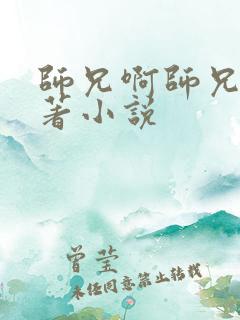 師兄啊師兄
著小說
曾莹
未经同意禁止转载